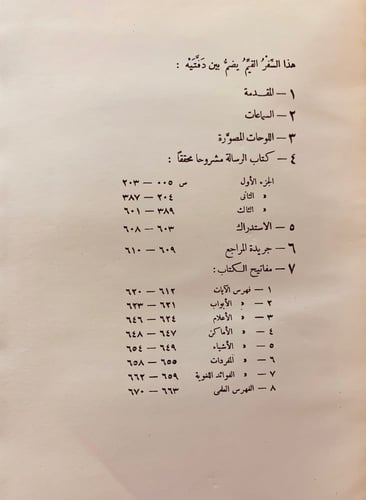 هذا السِّفْرُ القيِّمُ يضمُّ بين دَفَّتَيْه :
١ — المقدمة
٢ — السماعات
٣ — اللوحات المصوَّرة
٤ — كتاب الرسالة مشروحا محققاً :
الجزء الأول ص ٠٠٥ — ٢٠٣
« الثانى ٢٠٤ — ٣٨٧
« الثالث ٣٨٩ — ٦٠١
٥ — الاستدراك ٦٠٣ — ٦٠٨
٦ — جريدة المراجع ٦٠٩ — ٦١٠
٧ — مفاتيح الكتاب :
١ — فهرس الآيات ٦١٢ — ٦٢٠
٢ — « الأبواب ٦٢١ — ٦٢٣
٣ — « الأعلام ٦٢٤ — ٦٤٦
٤ — « الأماكن ٦٤٧ — ٦٤٨
٥ — « الأشياء ٦٤٩ — ٦٥٤
٦ — « المفردات ٦٥٥ — ٦٥٨
٧ — « الفوائد اللغوية ٦٥٩ — ٦٦٢
٨ — الفهرس العلمى ٦٦٣ — ٦٧٠